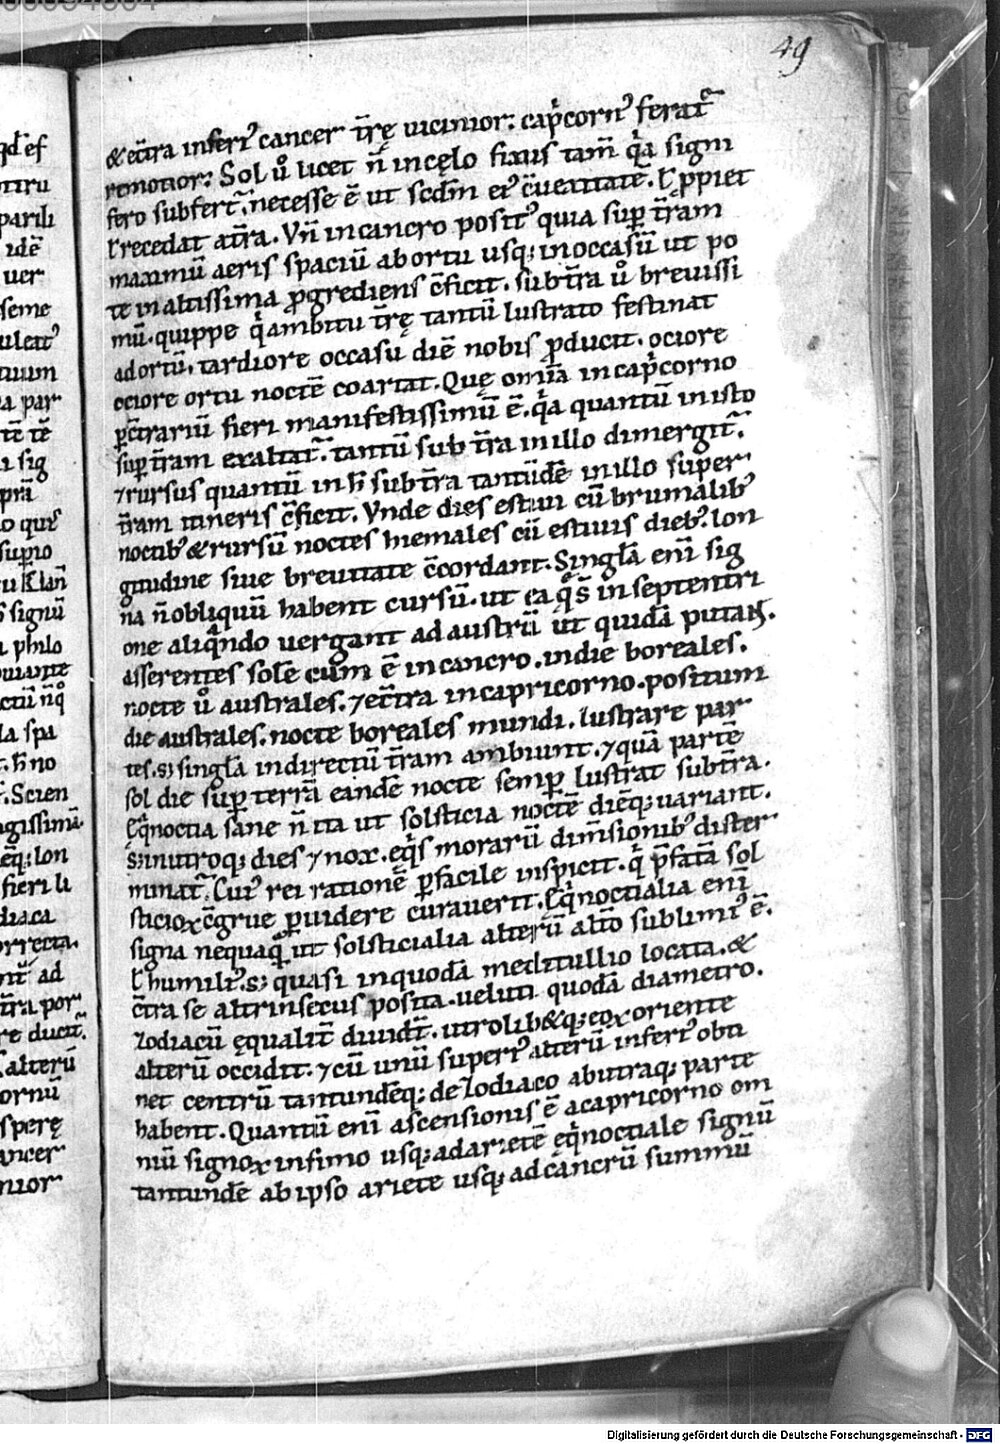 49
& ec̄tra inferi᷒ cancer tr̄ę uicinior: cap͛corn᷒ ferat᷑
remotior: Sol u̾ licet n̄ in cęlo fixus tam̄ q͛a signi
fero subfert᷑. necesse ē ut scd̄m ei᷒ c̄uenitatē. ł ꝓpiet
ł recedat at̄ra. Vn̄ in cancro posit᷒ quia sup̱ tr̄am
maximū aeris spaciū ab ortu usq; in occasū ut po
te in altissima ꝓgrediens c̄ficit. sub tr̄a u̾ breuissi
mū. quippe q͛ ambitu tr̄ę tantū lustrato festinat
ad ortū. tardiore occasu diē nobis ꝓducit. ociore
ociore ortu noctē coartat. Quę om̄ia in cap͛corno
ꝑc̄trariū fieri manifestissimū ē. q͛a quantū in isto
sup̱ tr̄am exaltat᷑. tantū sub tr̄a in illo dimergit᷑.
⁊ rursus quantū in h̄ sub tr̄a tantūdē in illo super
tr̄am itineris c̄ficit. Vnde dies estiui cū brumalib᷒
noctib᷒ & rursū noctes hiemales cū estiuis dieb᷒. lon
gitudine siue breuitate c̄cordant. Singl̄a eni̅ sig
na n̄ obliquū habent cursū. ut ea q͛s̄ in septentri
one aliqͣndo uergant ad austrū ut quidā putant.
asserentes solē cum ē in cancro. in die boreales.
nocte u̾ australes. ⁊ ec̄tra in capricorno. positum
die australes. nocte boreales mundi. lustrare par
tes. s; singl̄a in directū tr̄am ambiunt. ⁊ quā partē
sol die sup̱ terrā eandē nocte semp̱ lustrat sub tr̄a.
Eq͛noctia sane n̄ ita ut solsticia noctē dieq; uariant.
S; in utroq; dies ⁊ nox. eq͛s morarū dim̄sionib᷒ dister
minat᷑. Cui᷒ rei rationē ꝑfacile inspicit. q͛ p̄fatā sol
sticioꝝ c̄grue ꝑuidere curauerit. Eq͛noctialia eni̅
signa nequaq̄ ut solsticialia alterū alt̄o sublimi᷒ ē.
ł humili᷒. s; quasi in quodā meditullio locata. &
c̄tra se altrinsecus posita. ueluti quodā diametro.
Zodiacū ęqualit̄ diuidt᷑. utrolib&q; eoꝝ oriente
alterū occidit. ⁊ cū unū superi᷒ alterū inferi᷒ obti
net centrū tantundēq; de Zodiaco ab utraq; parte
habent. Quantū eni̅ ascensionis ē a capricorno om
niū signoꝝ infimo usq; ad arietē eq͛noctiale signū
tantundē ab ipso ariete usq; ad cancrū summū
qd̄ ef
parili
idē
uer
seme
a par
sig
prā
o que
supio
signū
philo
la spa
h̄ no
Scien
lon
fieri li
diaca
orrecta.
ad
tr̄a por
re ducit᷑.
alterū
ornū
sperę
ancer
nior
Digitalisierung gefördert durch die Deutsche Forschungsgemeinschaft - DFG